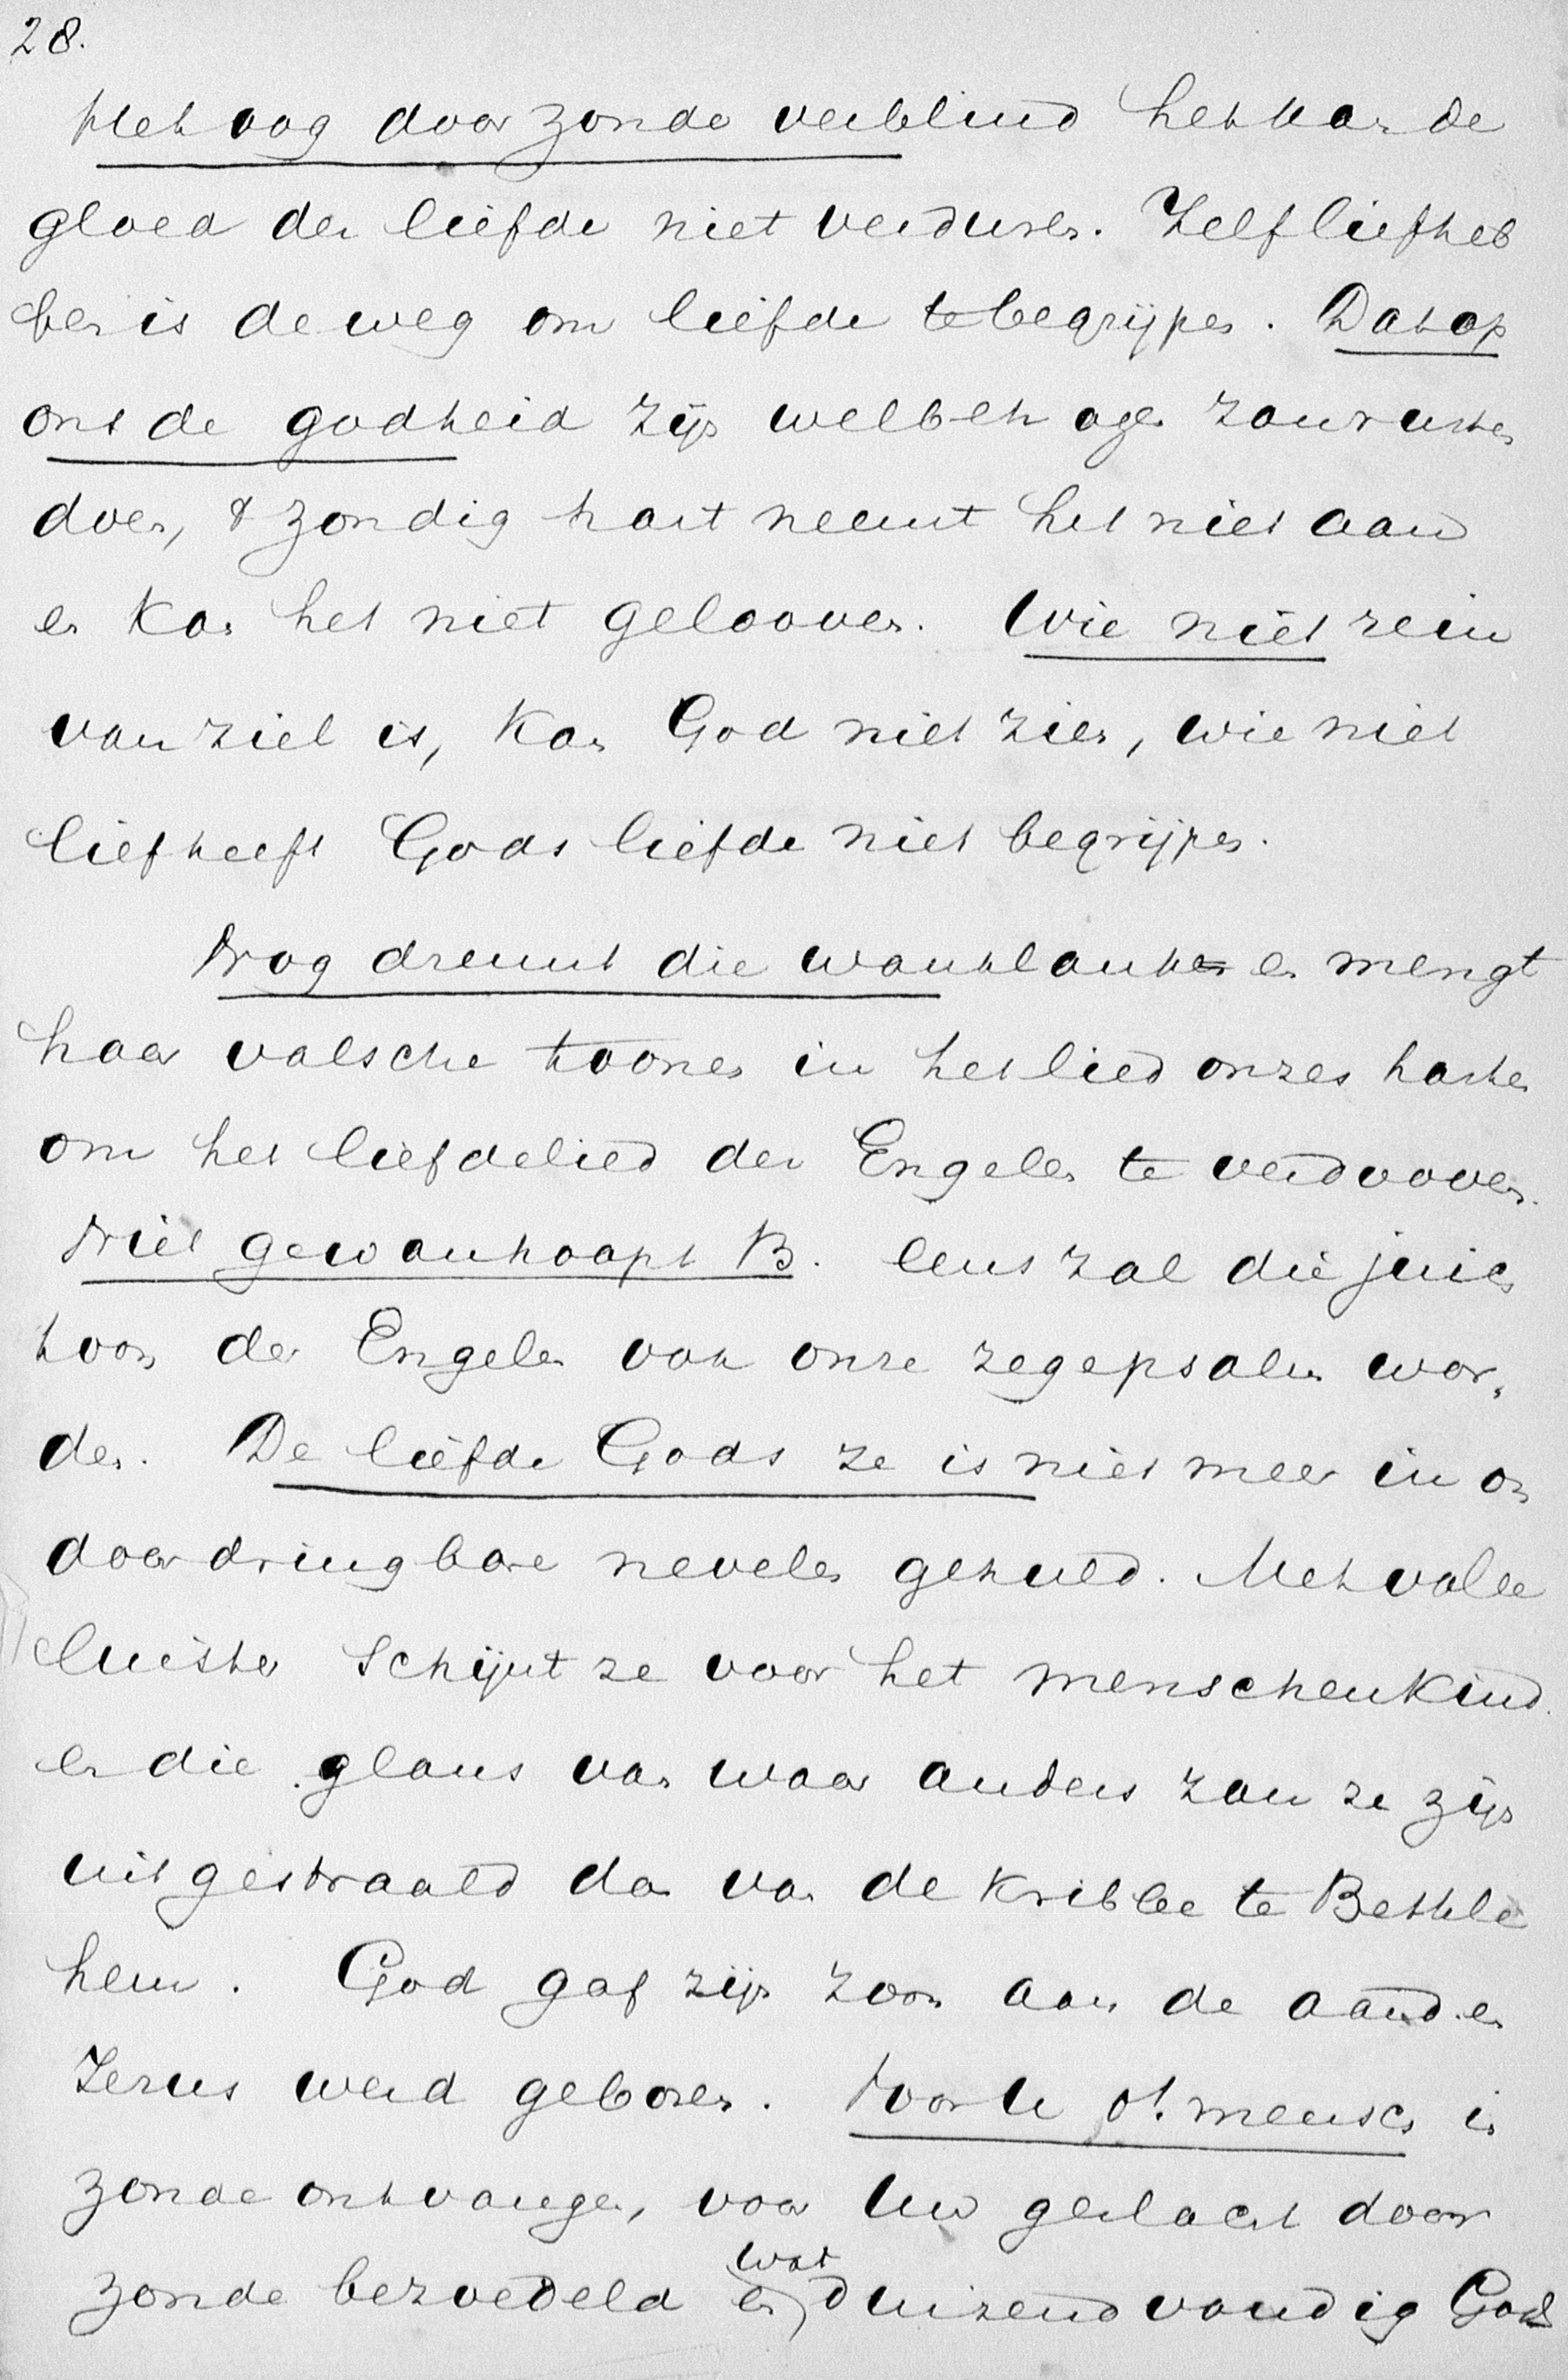 28.
Het oog door zonde verblind het kan de
gloed der liefde niet verduren. Zelf liefheb
ben is de weg om liefde te begrijpen. Dat op
ons de godheid zijn welbehagen zou rusten
doen, 't zondig hart neemt het niet aan
en kan het niet gelooven. Wie niet rein
van ziel is, kan God niet zien, wie niet
liefheeft Gods liefde niet begrijpen.
Nog dreunt die wanklank en mengt
haar valsche toonen in het lied onzes harten
om het liefdelied der Engelen te verdooven.
Niet gewanhoopt B. Eens zal die juich
toon der Engelen ook onze zegepsalm wor,
den. De liefde Gods ze is niet meer in on
doordringbare nevelen gehuld. Met volle
luister schijnt ze voor het menschenkind.
en die glans van waar anders zou ze zijn
uitgestraald dan van de kribbe te Bethle
hem. God gaf zijn zoon aan de aard en
Jezus werd geboren. Voor U o! mensch in
zonde ontvangen, voor Uw geslacht door
zonde bezoedeld en wat duizendvoudig Gods